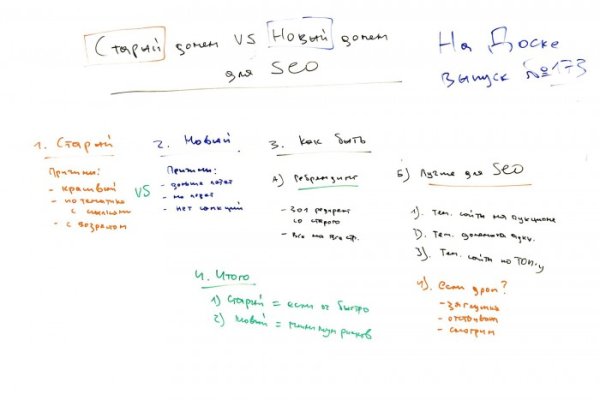 Старый домен VS Новый домен
для SEO
На Доске
выпуск №173
1. Старый
Причины:
- красивый
- по тематике
с ссылками
- с возрастом
VS
2. Новый
Причины:
- дольше
- не
- нет санкций
3. Как быть
А) Ребрендинг
- 301 редирект
со старого
- Все на все стр.
Б) Лучше для SEO
1). Тем. сайты на аукционе
2). Тем. домена аукц.
3). Тем. сайты по ТОП-у
4). если дроп?
- заглушка
-
- смотрим
4. Итого
1) Старый = если ок быстро
2) Новый = минимум рисков